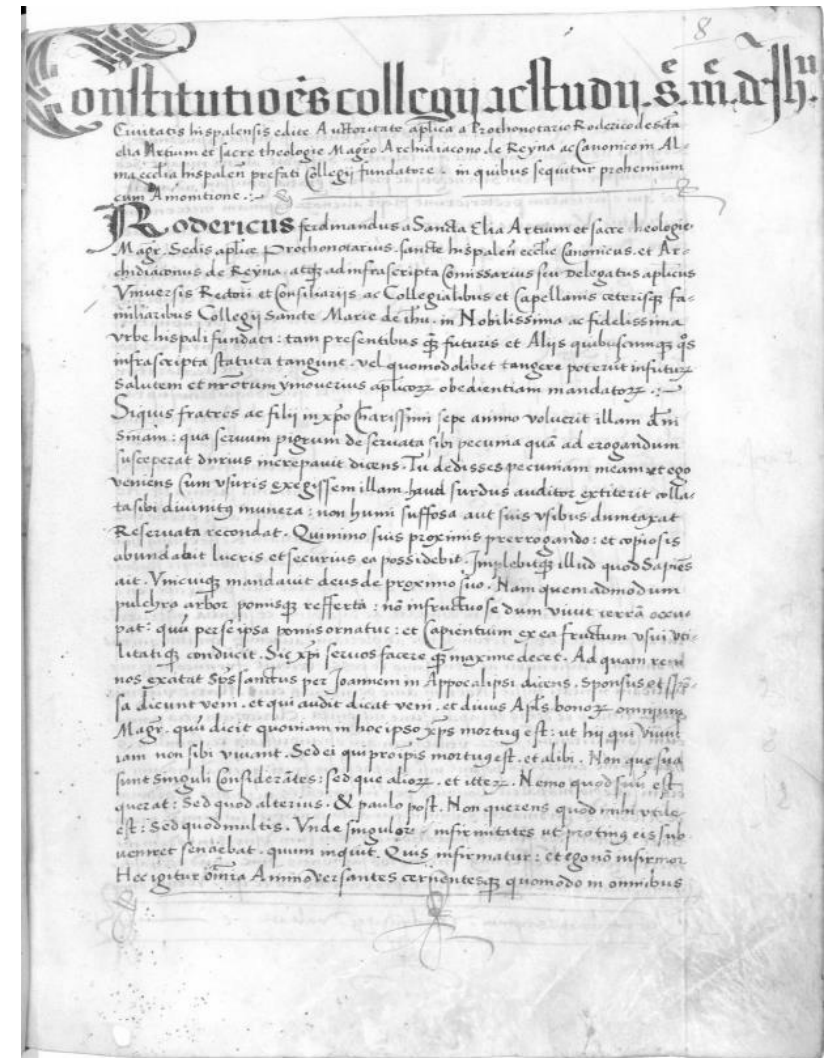 8
Constitutiões collegij ac studij . s̃. m̃. d̃ Jhũ.
Ciuitatis hispalensis edite Auctoritate aplica a Prothonotario Roderico de scta
elia Artium et sacre theologie Magro Archidiacono de Reyna ac Canonico in Al-
ma ecclia hispaleñ prefati Collegij fundatore . in quibus sequitur prohemium
cum Amonitione .:~
Rodericus ferdinandus a Sancta Elia Artium et sacre theologie
Magr̃. Sedis aplice Prothonotarius . sancte hispaleñ ecclie Canonicus . et Ar-
chidiaconus de Reyna . atqꝫ ad infrascripta Comissarius seu Delegatus aplicus
Vniuersis Rectori et Consiliarijs ac Collegialibus et Capellanis ceterisqꝫ fa-
miliaribus Collegij Sancte Marie de ihu . in Nobilissima ac fidelissima
vrbe hispali fundati : tam presentibus qꝫ futuris et Alijs quibuscumqꝫ q̃s
infrascripta statuta tangunt . vel quomodolibet tangere poterũt in futuꝝ
Salutem et nr̃otum ymouerius aplicoꝝ obedientiam mandatoꝝ .:~
Siquis fratres ac filij in xp̃o Charissimi sepe animo voluerit illam dñi
sñiam : qua seruum pigrum de seruata sibi pecunia quã ad erogandum
susceperat durius increpauit dicens . Tu dedisses pecuniam meam et ego
veniens cum vsuris exegissem illam . haud surdus auditor extiterit colla-
ta sibi diuinitꝰ munera : non humi suffosa aut suis vsibus dumtaxat
Reseruata recondat . Quinimo suis proximis prerrogando : et copiosis
abundabit lucris et securius ea possidebit . Implebitqꝫ illud quod Sapiẽs
ait . Vnicuiqꝫ mandauit deus de proximo suo . Nam quemadmodum
pulchra arbor pomisqꝫ refferta : nõ infructuose dum viuit terrã occu-
pat : quũ per se ipsa pomis ornatur : et Capientium ex ea fructum vsui vti-
litatiqꝫ conducit . Sic xp̃i seruos facere qꝫ maxime decet . Ad quam rem
nos exatat Sp̃s sanctus per Joannem in Appocalipsi dicens . Sponsus et spõ-
sa dicunt veni . et qui audit dicat veni . et diuus Apl̃s bonoꝝ omnium
Magr̃ . quũ dicit quoniam in hoc ipso xp̃s mortuꝰ est : ut hij qui viuũt
iam non sibi viuant . Sed ei qui pro ip̃is mortuꝰ est . et alibi . Non que sua
sunt singuli Considerãtes : sed que alioꝝ . et iteꝝ . Nemo quod suũ est
querat : Sed quod alterius . & paulo post . Non querens quod mihi vtile
est : Sed quod multis . Vnde singuloꝝ infirmitates ut protinꝰ eis sub
ueniret senciebat . quum inquit . Quis infirmatur : et ego nõ infirmor
Hec igitur om̃ia Animo versantes cernentesqꝫ quomodo in omnibus